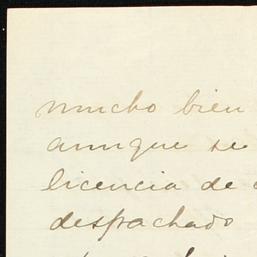 mucho bien
aunque se
licencia de
despachado